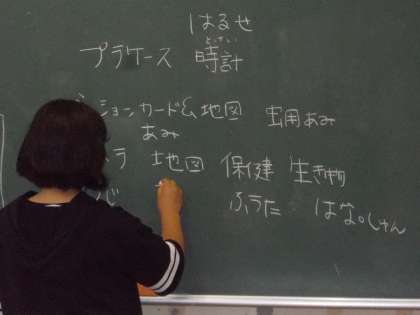 はるせ
とけい
プラケース 時計
ションカード&地図 虫用あみ
あみ
ラ 地図 保健 生き物
ふうた はな。しゅん